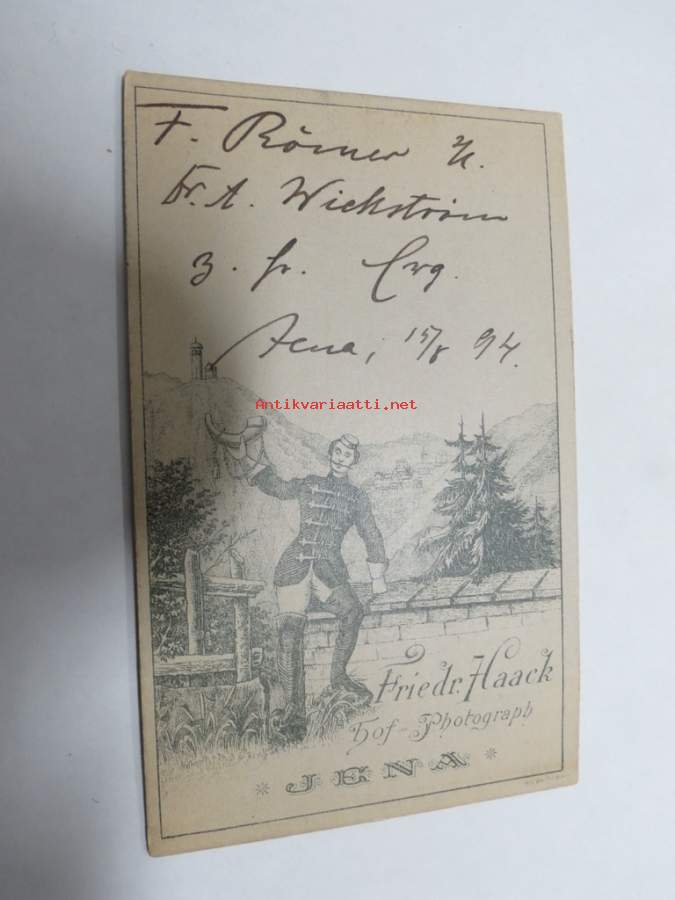 F. Römer
A. Wickström
z. fr. Erg.
Jena, 15/8 94.
Antikvariaatti.net
Friedr. Haack
Hof-Photograph
JENA